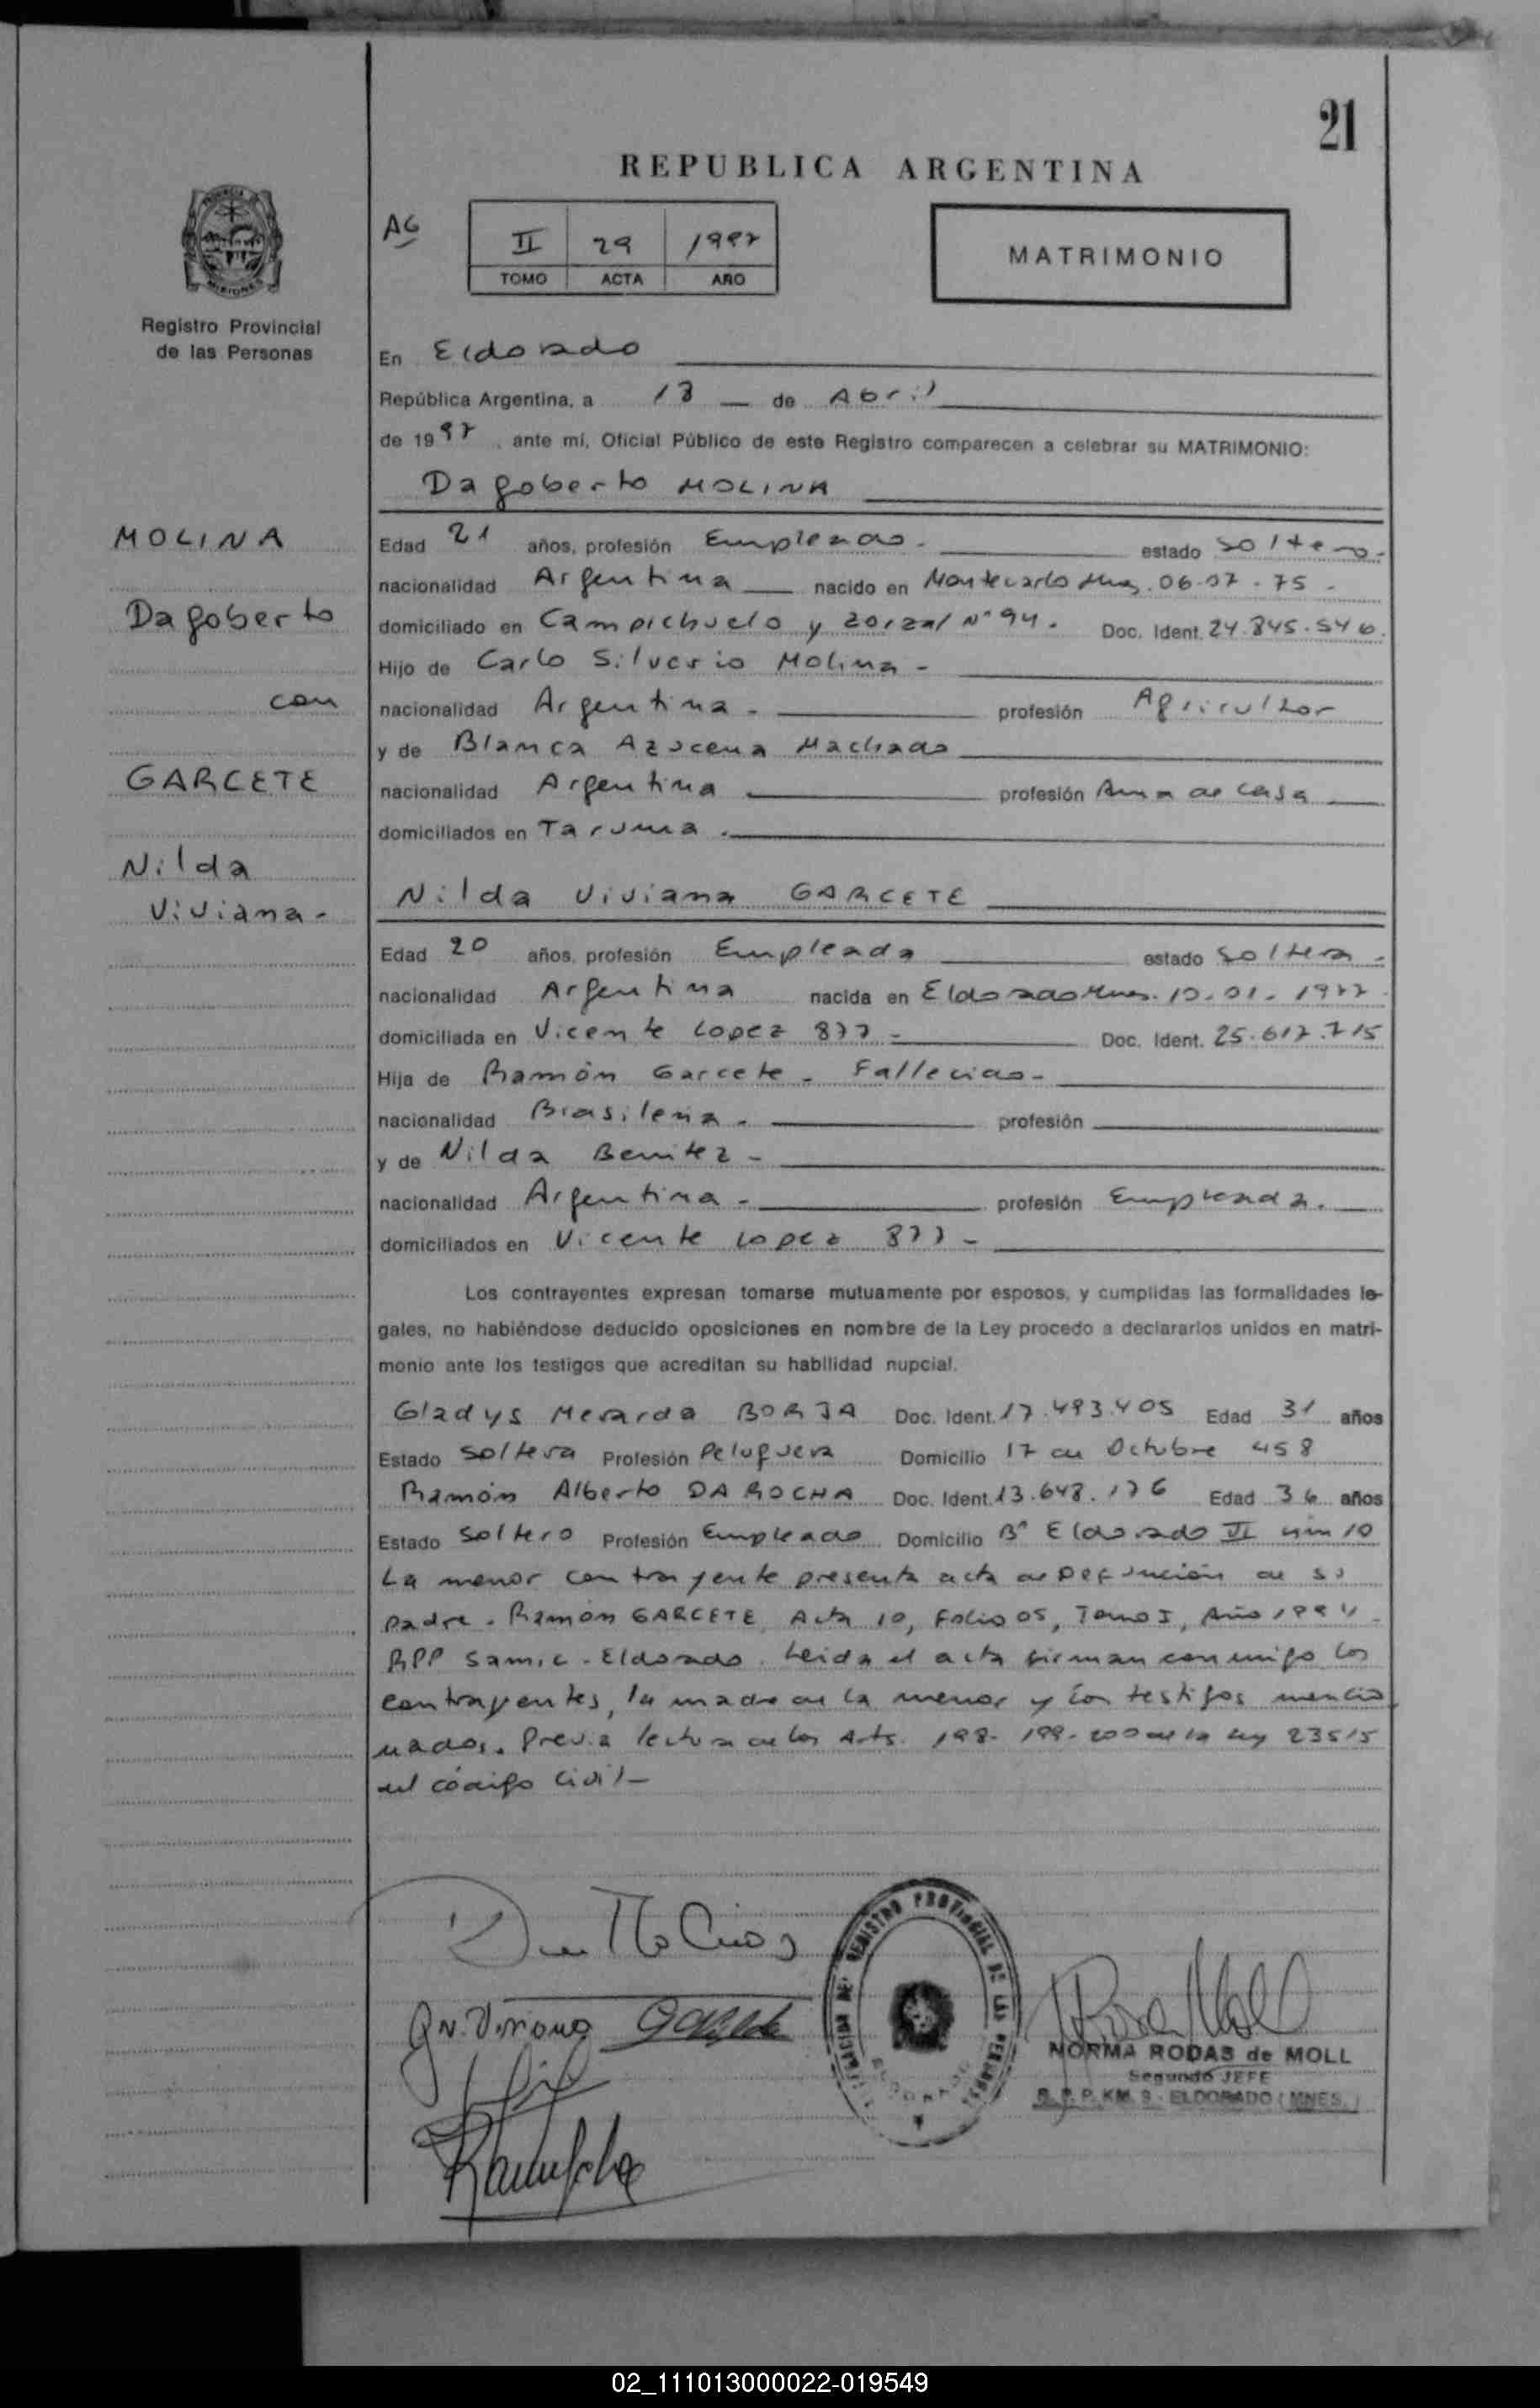 21
REPUBLICA ARGENTINA
AG
II 29 1997
TOMO ACTA AÑO
MATRIMONIO
Registro Provincial
de las Personas
En Eldorado
República Argentina, a 18 de Abril
de 1997, ante mí, Oficial Público de este Registro comparecen a celebrar su MATRIMONIO:
Dagoberto MOLINA
MOLINA
Dagoberto
con
GARCETE
Nilda
Viviana-
Edad 21 años, profesión Empleado - estado soltero-
nacionalidad Argentina nacido en Montecarlo Mnes. 06-07-75-
domiciliado en Campichuelo y zorzal N° 94. Doc. Ident. 24.845.546.
Hijo de Carlo Silverio Molina -
nacionalidad Argentina - profesión Agricultor
y de Blanca Azucena Machado
nacionalidad Argentina profesión Ama de casa
domiciliados en Taruma.
Nilda Viviana GARCETE
Edad 20 años, profesión Empleada estado soltera-
nacionalidad Argentina nacida en Eldorado Mnes. 01. 1977
domiciliada en Vicente Lopez 877 - Doc. Ident. 25.617.715
Hija de Ramón Garcete - Fallecido-
nacionalidad Brasileña - profesión
y de Nilda Benitez -
nacionalidad Argentina - profesión Empleada.
domiciliados en Vicente Lopez 877 -
Los contrayentes expresan tomarse mutuamente por esposos, y cumplidas las formalidades le-
gales, no habiéndose deducido oposiciones en nombre de la Ley procedo a declararlos unidos en matri-
monio ante los testigos que acreditan su habilidad nupcial.
Gladys Merarda BORJA Doc. Ident. 17.493.405 Edad 31 años
Estado soltera Profesión Peluquera Domicilio 17 de Octubre 458
Ramón Alberto DA ROCHA Doc. Ident. 13.648.176 Edad 36 años
Estado soltero Profesión Empleado Domicilio B° Eldorado II km 10
La menor contrayente presenta acta de Defunción de su
padre. Ramón GARCETE, Acta 10, Folio 05, Tomo I, Año 1994-
RPP Samic - Eldorado. Leida el acta firman conmigo los
contrayentes, la madre de la menor y los testigos mencio
nados. Previa lectura de los Arts. 198- 199- 200 de la Ley 23515
del código Civil-
REGISTRO PROVINCIAL DE LAS PERSONAS
ELDORADO
NORMA RODAS de MOLL
Segundo JEFE
R. P. P. KM. 9 - ELDORADO (MNES.)
02_111013000022-019549